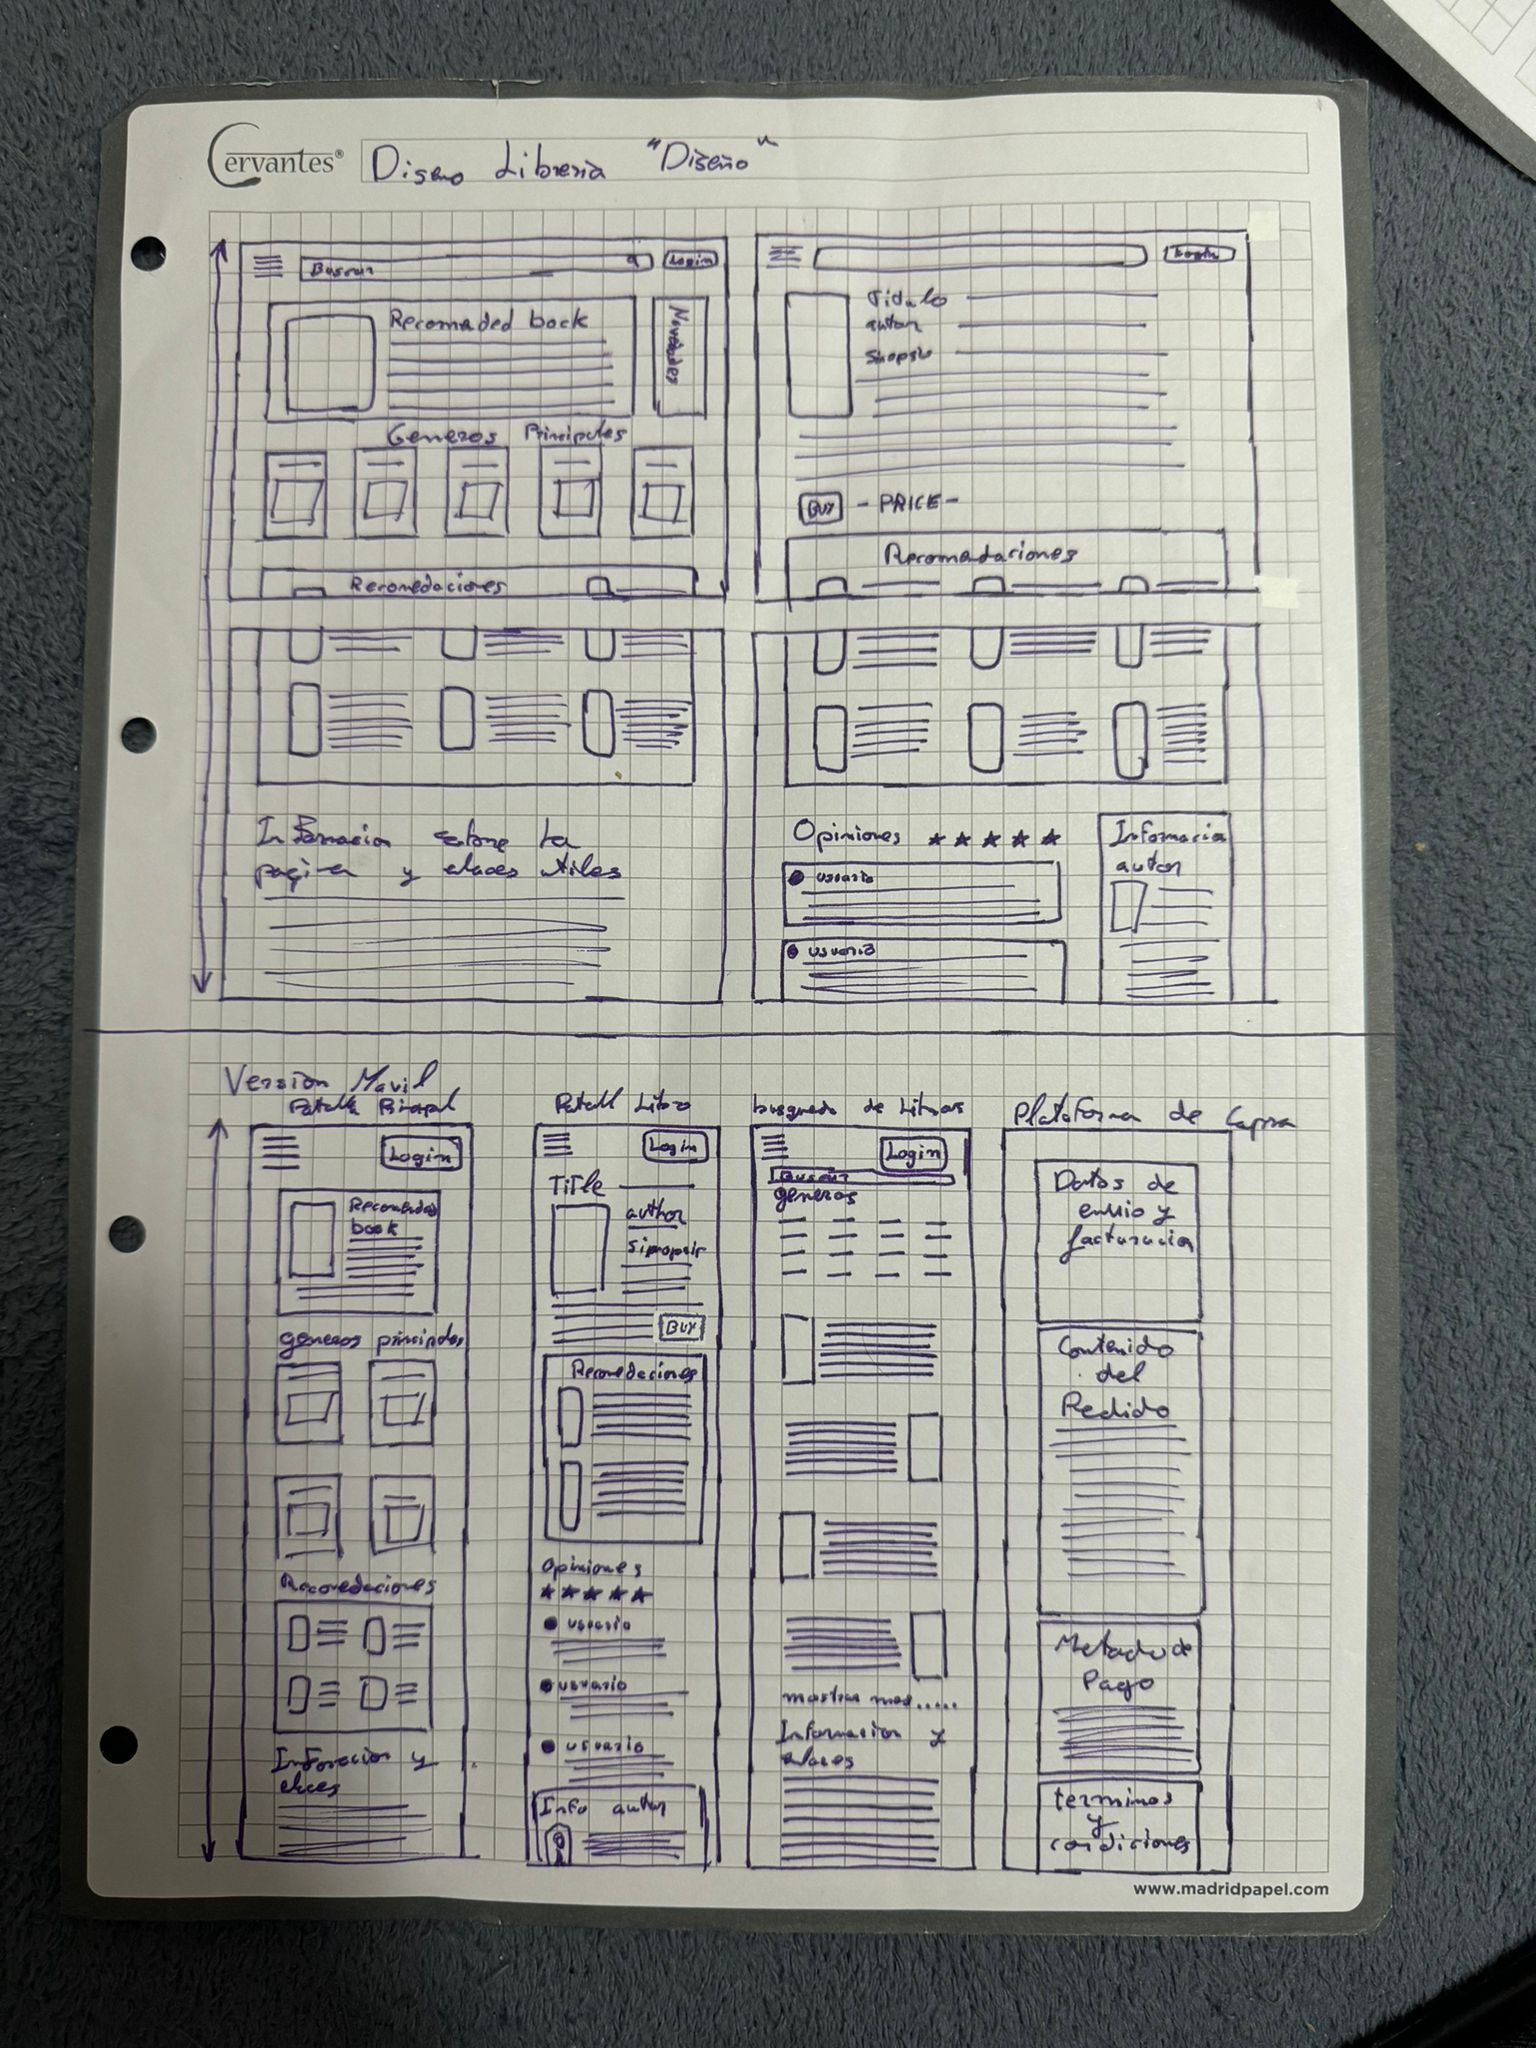 Cervantes®
Diseño Libreria "Diseño"
Buscar
Login
Recomaded book
Novedades
Generos Principales
Recomedaciones
Informacion sobre la
pagina y elaces utiles
Login
Titulo
autor
BUY - PRICE -
Recomadaciones
Opiniones ★ ★ ★ ★ ★
usuario
usuario
Informacion
autor
Version Movil
Principal
Login
Recomended
book
generos principales
Recomedaciones
Informacion y
Libro
Login
TiTle
author
BUY
Recomedaciones
Opiniones
★ ★ ★ ★ ★
usuario
usuario
usuario
Info autor
busqueda de Libros
Login
Buscar
generos
mostrar mas.....
Informacion y
enlaces
Plataforma de
Datos de
envio y
facturacion
Contenido
del
Pedido
Metodo de
Pago
terminos
y
condiciones
www.madridpapel.com